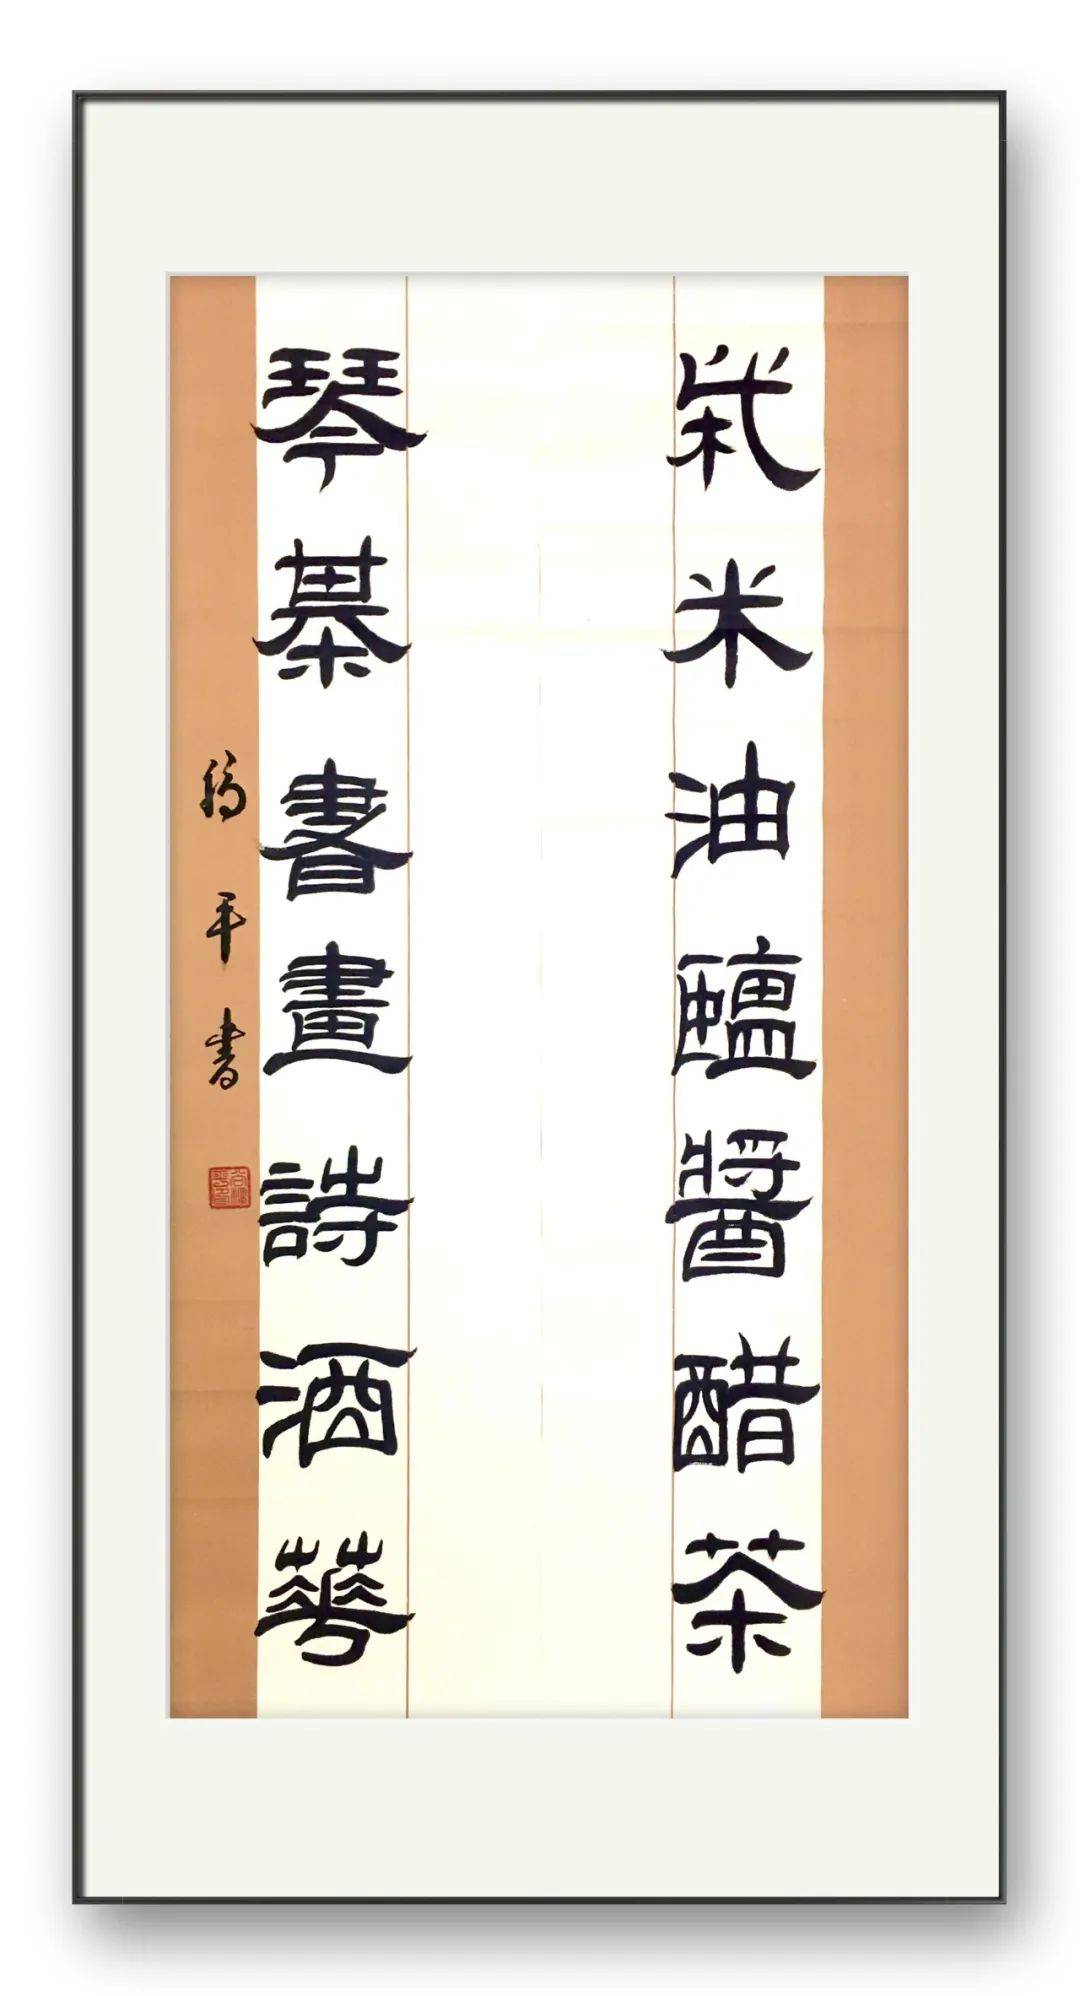 柴米油鹽醬醋茶
琴棊書畫詩酒華
福平書